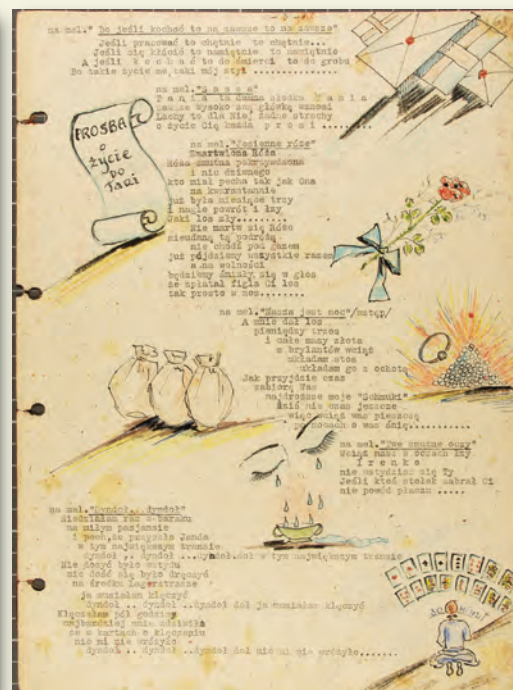 na mel." Bo jeśli kochać to na zawsze to na zawsze"
Jeśli pracować to chętnie to chętnie...
Jeśli się kłócić to namiętnie to namiętnie
A jeśli k o c h a ć to do śmierci to do grobu
Bo takie życie ma taki mój styl ..............
na mel."S a s z a"
T a n i a ta dumna słodka T a n i a
Zawsze wysoko swą główkę wznosi
Lachy to dla Niej żadne strachy
o życie Cię każda p r o s i ..........
PROSBA
o
życie
DO
TANI
na mel."Jesienne róże"
Zmartwiona Róża
Róża smutna pokrzywdzona
i nic dziwnego
kto miał pecha tak jak Ona
na kwarantannie
już była miesiące trzy
i nagle powrót i łzy
Jaki los zły........
Nie martw się Różo
nieudaną tą podróżą
nie chodź pod gazem
już pójdziemy wszystkie razem
a na wolności
będziemy śmiały się w głos
że spłatał figla Ci los
tak prosto w nos........
na mel."Nasza jest noc"/wstęp/
A mnie dał los
pieniędzy trzos
i całe masy złota
z brylantów wciąż
układam stos
układam go z ochotą
Jak przyjdzie czas
zabiorę Was
najdroższe moje "Schmuki"
dziś nie czas jeszcze
więc wciąż was pieszczę
po nocach o was śnię...........
na mel."Twe smutne oczy"
Wciąż masz w oczach łzy
I r e n k o
nie wstydzisz się Ty
Jeśli ktoś stołek zabrał Ci
nie powód płaczu .....
na mel."Dyndoł..dyndoł"
Siedziałam raz w baraku
na miłym pasjansie
i pech,że przyszła Janda
w tym największym transie
dyndoł .. dyndoł ...dyndoł.doł w tym największym transie
Nie dosyć było wstydu
nic dość się było dręczyć
na środku Lagerstrasse
ja musiałam klęczyć
dyndoł .. dyndoł ..dyndoł dał ja musiałam klęczyć
Klęczałam pół godziny
najbardziej mnie zdziwiło
że z kartach o klęczeniu
nic mi nie wróżyło
dyndoł .. dyndoł ..dyndoł doł nic mi nie wróżyło.......